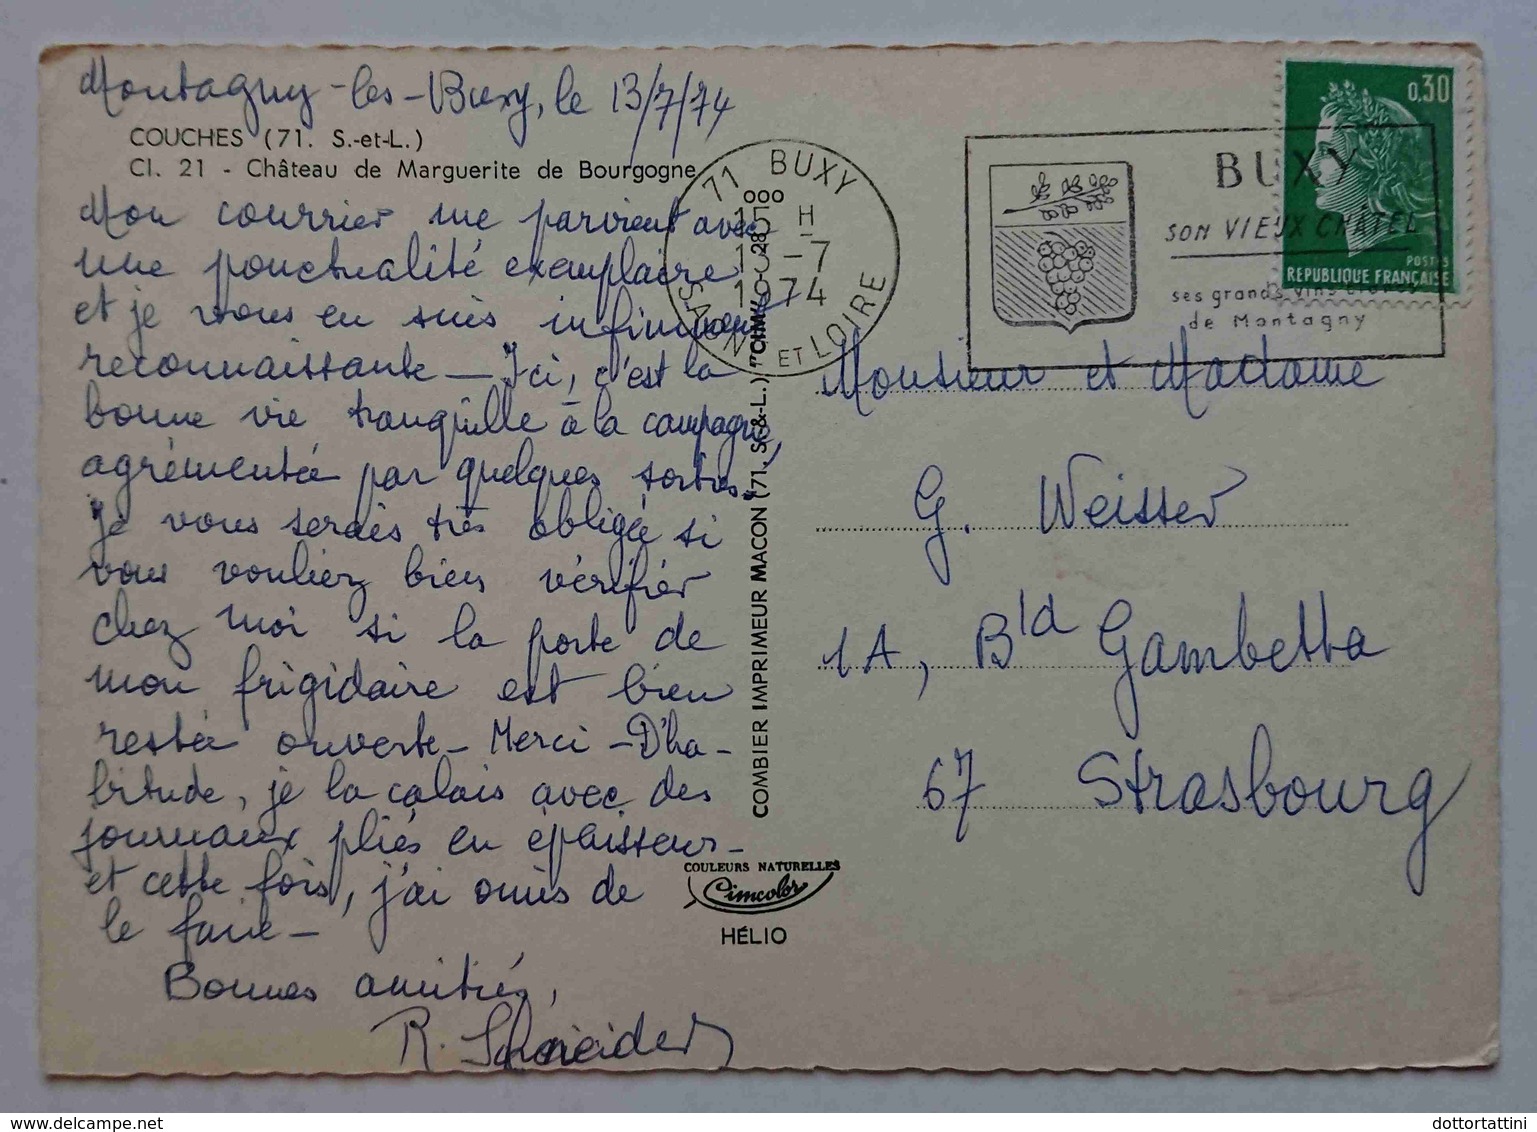 Montagny-les-Buxy, le 13/7/74
COUCHES (71. S.-et-L.)
Cl. 21 - Château de Marguerite de Bourgogne
Mon courrier me parvient avec
une ponctualité exemplaire
et je vous en suis infiniment
reconnaissante — Ici, c'est la
bonne vie tranquille à la campagne,
agrémentée par quelques sorties.
Je vous serais très obligée si
vous vouliez bien vérifier
chez moi si la porte de
mon frigidaire est bien
restée ouverte — Merci — D'ha-
bitude, je la calais avec des
journaux pliés en épaisseur —
et cette fois, j'ai omis de
le faire —
Bonnes amitiés,
R. Schneider
COMBIER IMPRIMEUR MACON (71. S.-&-L.) "CIM"
COULEURS NATURELLES
Cimcolor
HÉLIO
71 BUXY
15 H
13-7
1974
SAONE ET LOIRE
BUXY
SON VIEUX CHÂTEL
ses grands vins
de Montagny
0,30
POSTES
REPUBLIQUE FRANÇAISE
Monsieur et Madame
G. Weisser
1A, Bld Gambetta
67 Strasbourg
delcampe.net
dottortattini